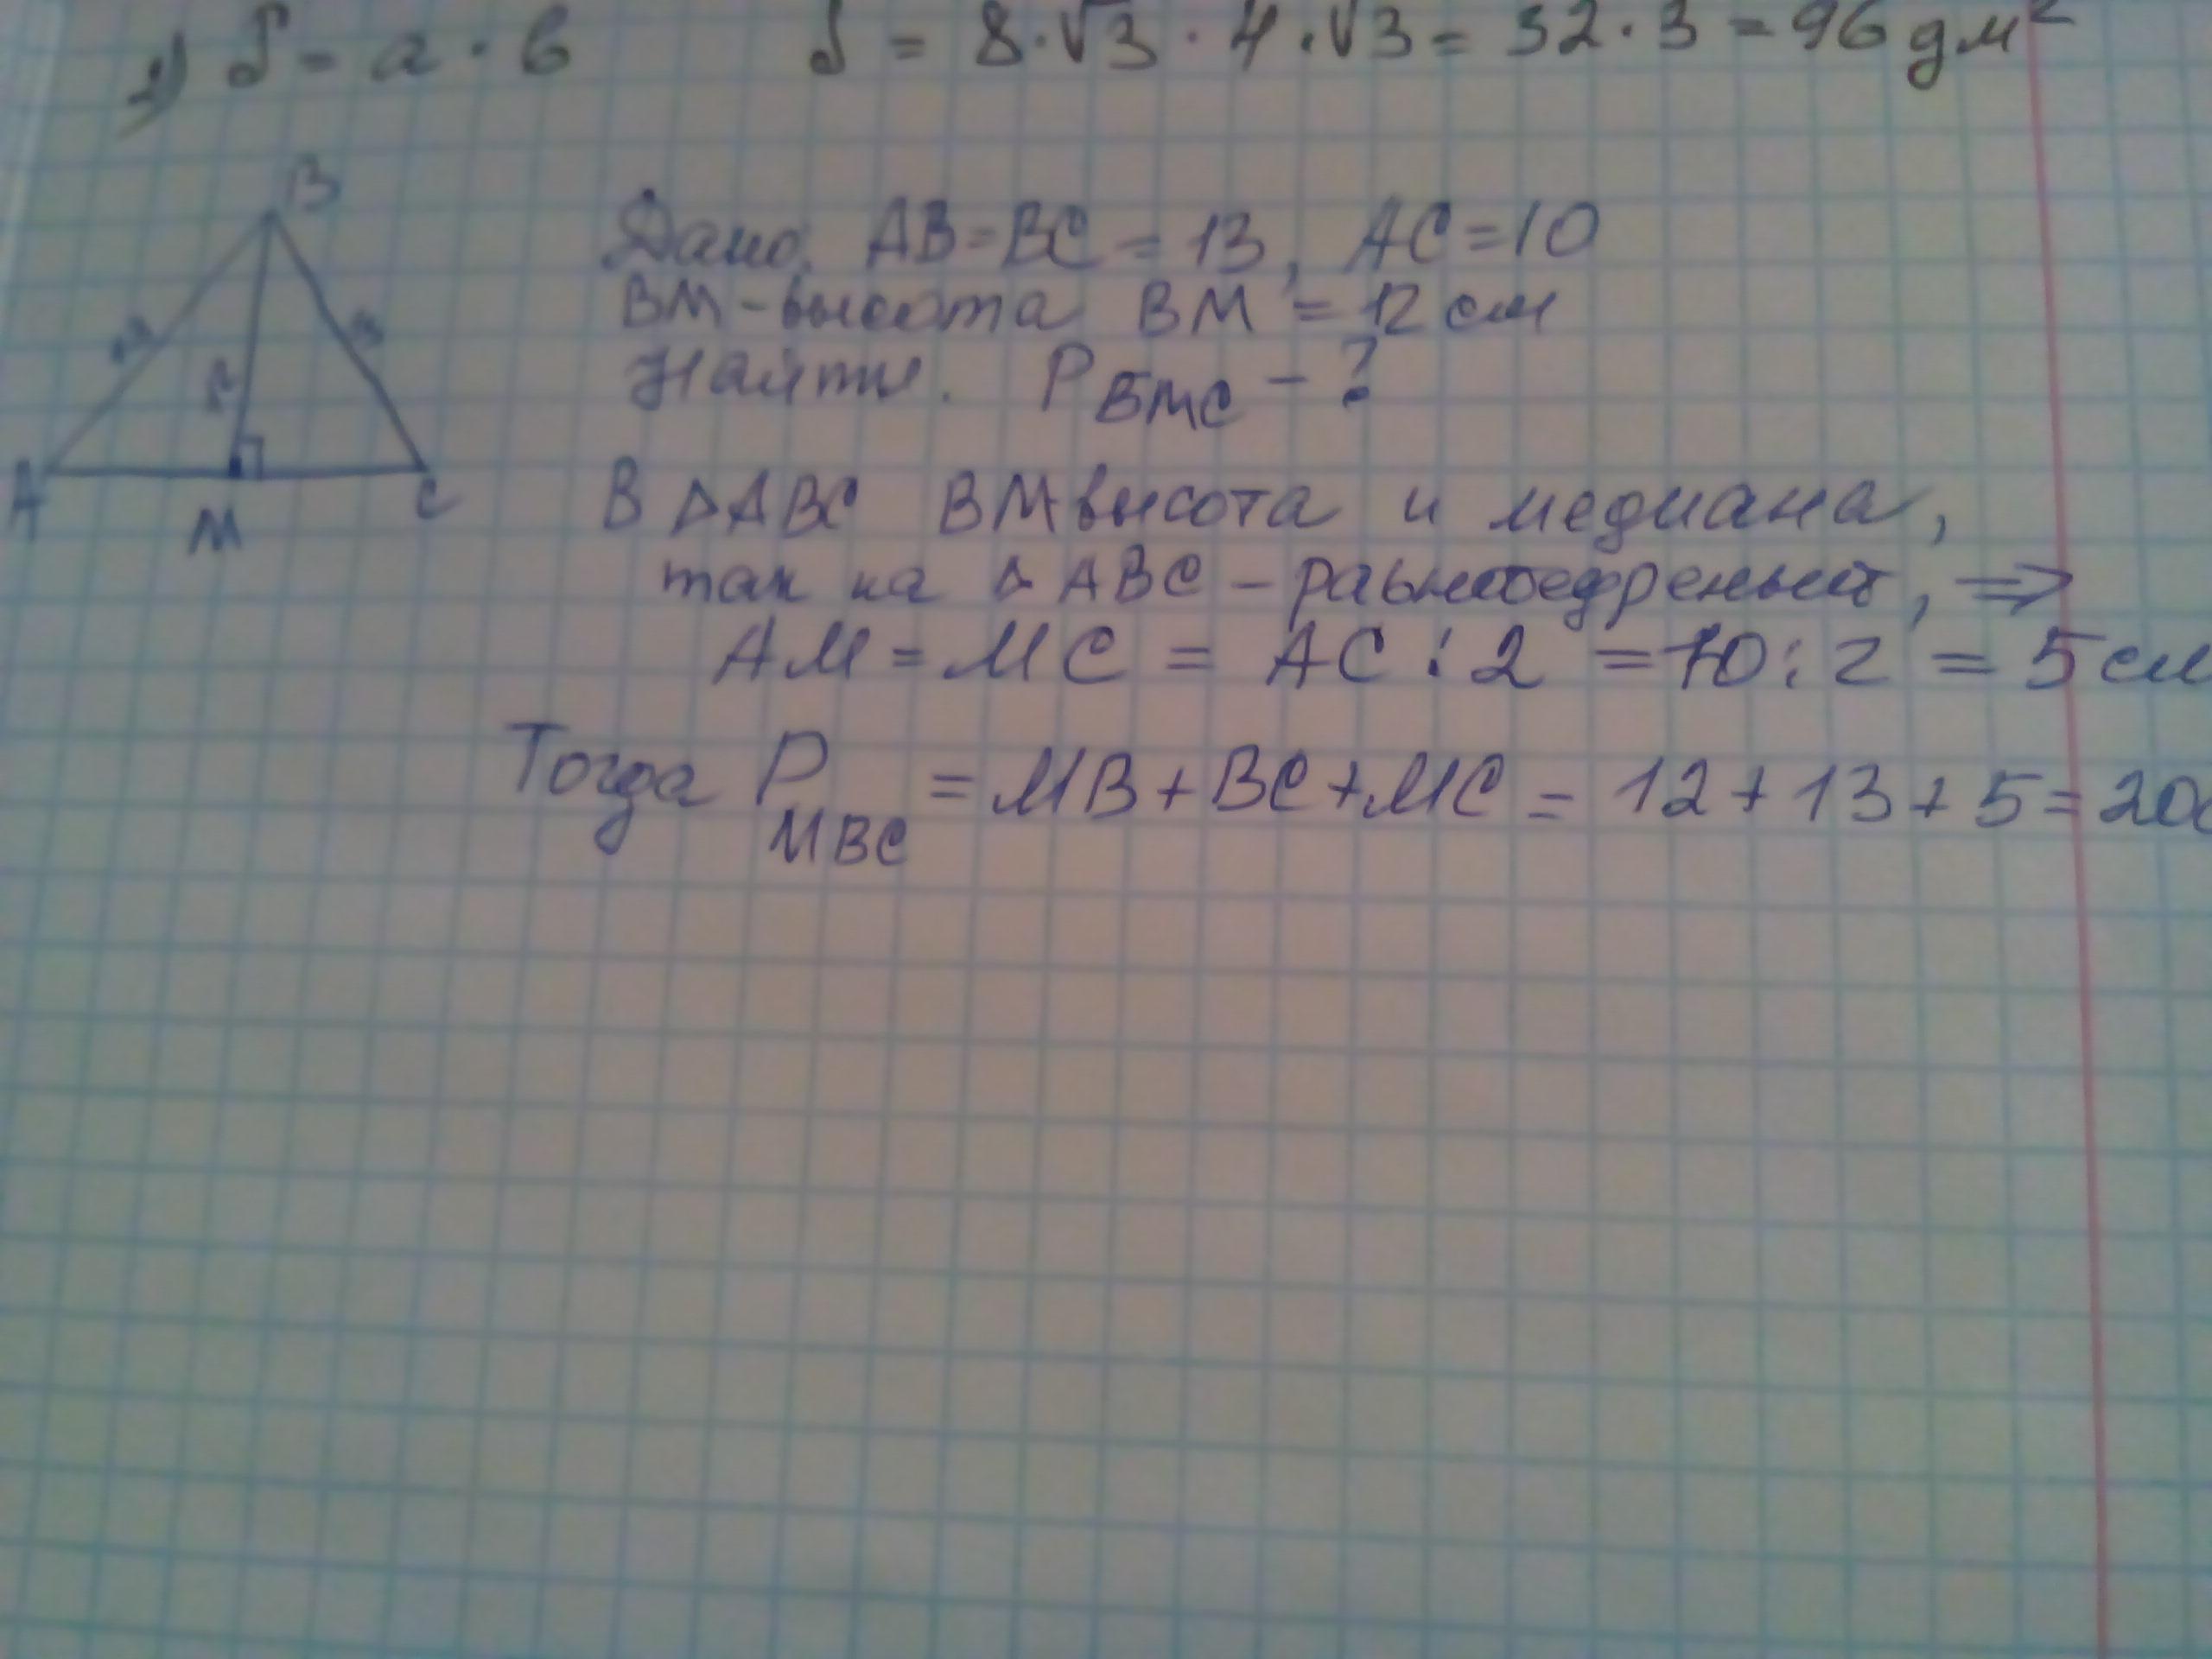 1) S = a · b S = 8·√3 · 4·√3 = 32·3 = 96 дм²
B
Дано. AB=BC = 13, AC=10
BM-высота BM = 12 см
13 13
12
Найти. P БМС - ?
A M C
В △ABC BM высота и медиана,
так ка △ABC - равнобедреный, ⇒
AM = MC = AC : 2 = 10 : 2 = 5 см
Тогда P MBC = MB + BC + MC = 12 + 13 + 5 = 20с